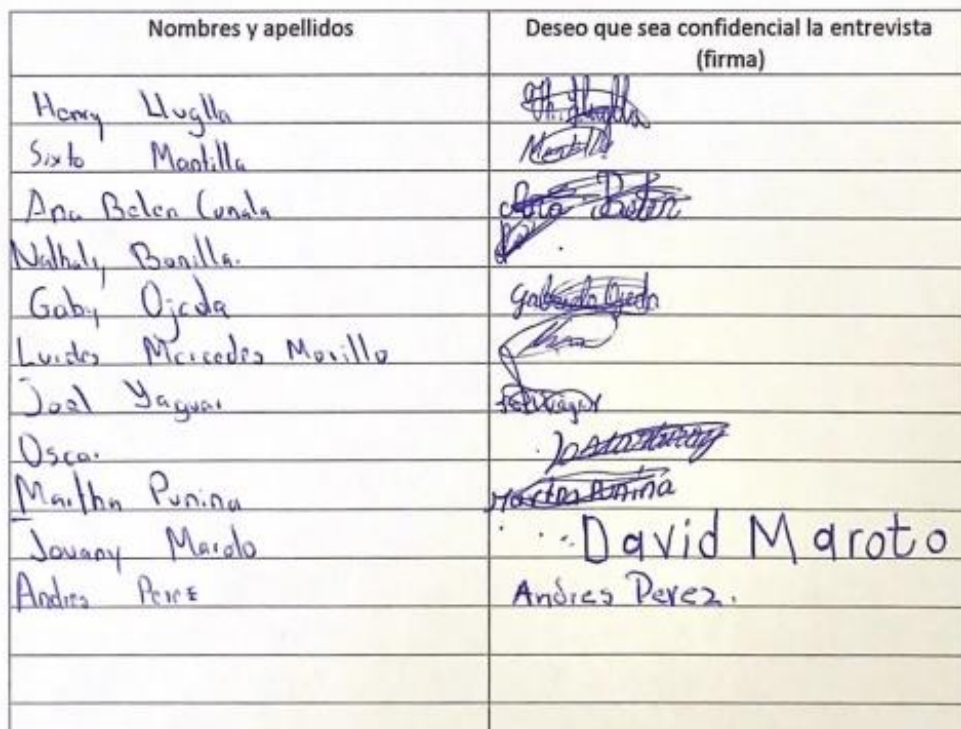 Nombres y apellidos
Deseo que sea confidencial la entrevista
(firma)
Henry Lluglla
Sixto Mantilla Mantilla
Ana Belen Ana Belen
Nathaly Bonilla.
Gaby Ojeda Gabriela Ojeda
Mercedes Morillo
Joel Yaguar
Oscar
Martha Punina Martha Punina
Jovany Maroto David Maroto
Andres Perez Andres Perez.